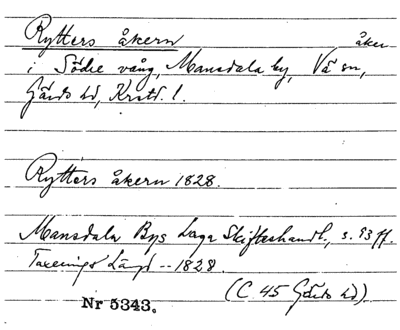 Rytters åkern åker
i Södre vång, Mansdala by, Vä sn,
Gärds hd, Krstd. l.
Rytters åkern 1828.
Mansdala Bys Laga Skifteshandl., s. 93 ff.
Taxerings Längd -- 1828.
(C 45 Gärds hd)
Nr 5343.